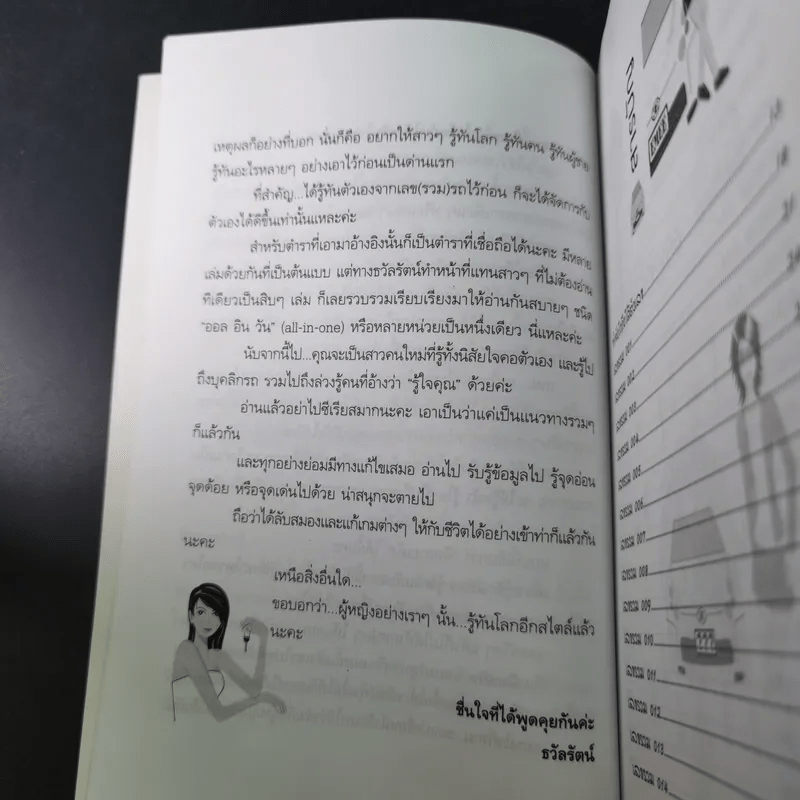 เหตุผลก็อย่างที่บอก นั่นก็คือ อยากให้สาวๆ รู้ทันโลก รู้ทันคน รู้ทันผู้ชาย
รู้ทันอะไรหลายๆ อย่างเอาไว้ก่อนเป็นด่านแรก
ที่สำคัญ...ได้รู้ทันตัวเองจากเลข(รวม)รถไว้ก่อน ก็จะได้จัดการกับ
ตัวเองได้ดีขึ้นเท่านั้นแหละค่ะ
สำหรับตำราที่เอามาอ้างอิงนั้นก็เป็นตำราที่เชื่อถือได้นะคะ มีหลาย
เล่มด้วยกันที่เป็นต้นแบบ แต่ทางธวัลรัตน์ทำหน้าที่แทนสาวๆ ที่ไม่ต้องอ่าน
ทีเดียวเป็นสิบๆ เล่ม ก็เลยรวบรวมเรียบเรียงมาให้อ่านกันสบายๆ ชนิด
“ออล อิน วัน” (all-in-one) หรือหลายหน่วยเป็นหนึ่งเดียว นี่แหละค่ะ
นับจากนี้ไป...คุณจะเป็นสาวคนใหม่ที่รู้ทั้งนิสัยใจคอตัวเอง และรู้ไป
ถึงบุคลิกรถ รวมไปถึงล่วงรู้คนที่อ้างว่า “รู้ใจคุณ” ด้วยค่ะ
อ่านแล้วอย่าไปซีเรียสมากนะคะ เอาเป็นว่าแค่เป็นแนวทางรวมๆ
ก็แล้วกัน
และทุกอย่างย่อมมีทางแก้ไขเสมอ อ่านไป รับรู้ข้อมูลไป รู้จุดอ่อน
จุดด้อย หรือจุดเด่นไปด้วย น่าสนุกจะตายไป
ถือว่าได้ลับสมองและแก้เกมต่างๆ ให้กับชีวิตได้อย่างเข้าท่าก็แล้วกัน
นะคะ
เหนือสิ่งอื่นใด...
ขอบอกว่า...ผู้หญิงอย่างเราๆ นั้น...รู้ทันโลกอีกสไตล์แล้ว
นะคะ
ชื่นใจที่ได้พูดคุยกันค่ะ
ธวัลรัตน์
สารบัญ
เลขรวม 001
เลขรวม 002
เลขรวม 003
เลขรวม 004
เลขรวม 005
เลขรวม 006
เลขรวม 007
เลขรวม 008
เลขรวม 009
เลขรวม 010
เลขรวม 011
เลขรวม 012
เลขรวม 013
เลขรวม 014